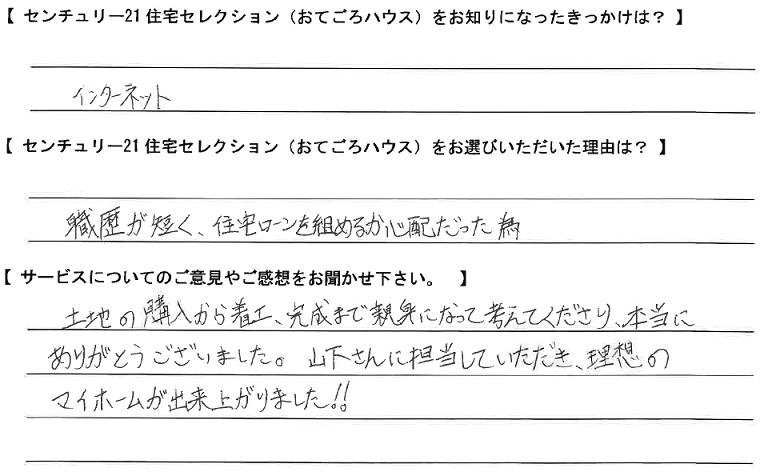 【 センチュリー21 住宅セレクション（おてごろハウス）をお知りになったきっかけは？ 】
インターネット
【 センチュリー21 住宅セレクション（おてごろハウス）をお選びいただいた理由は？ 】
職歴が短く、住宅ローンを組めるか心配だった為
【 サービスについてのご意見やご感想をお聞かせ下さい。 】
土地の購入から着工、完成まで親身になって考えてくださり、本当に
ありがとうございました。山下さんに担当していただき、理想の
マイホームが出来上がりました!!